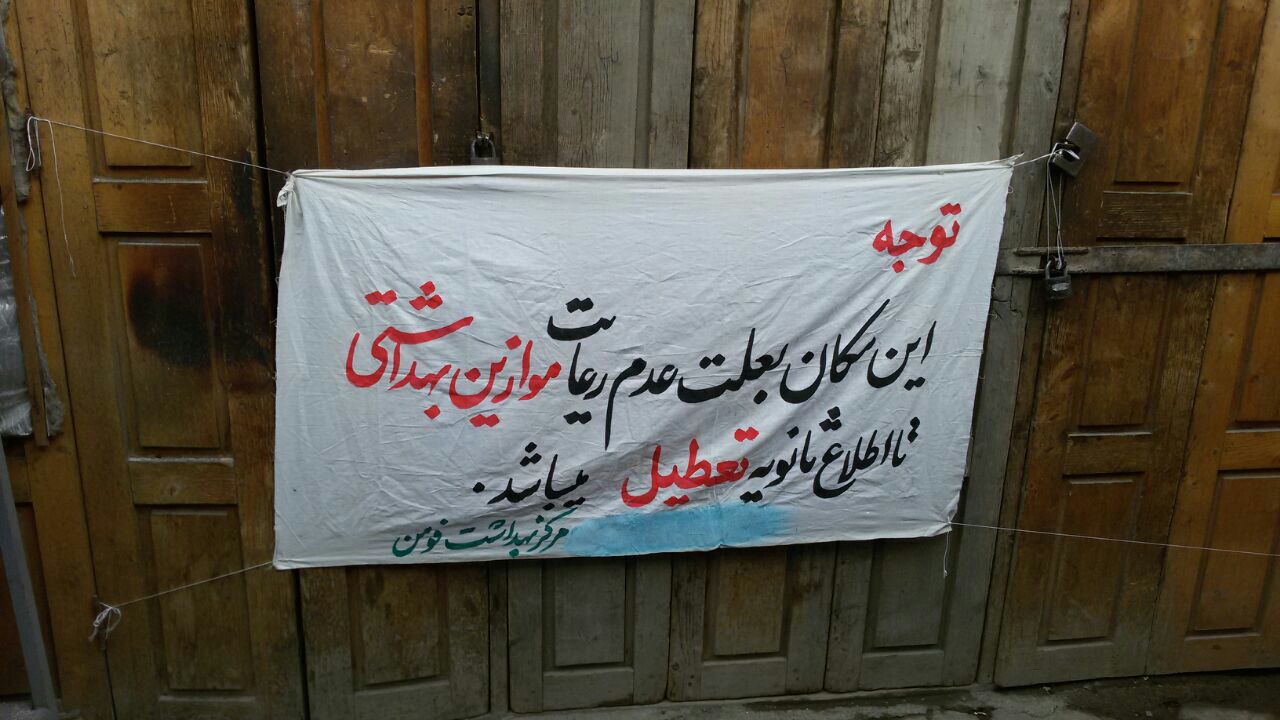 توجه
این مکان بعلت عدم رعایت موازین بهداشتی
تا اطلاع ثانویه تعطیل میباشد.
مرکز بهداشت فومن